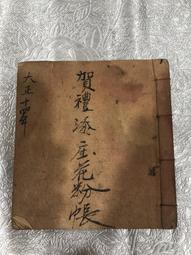 賀禮添座花粉帳
大正十四年